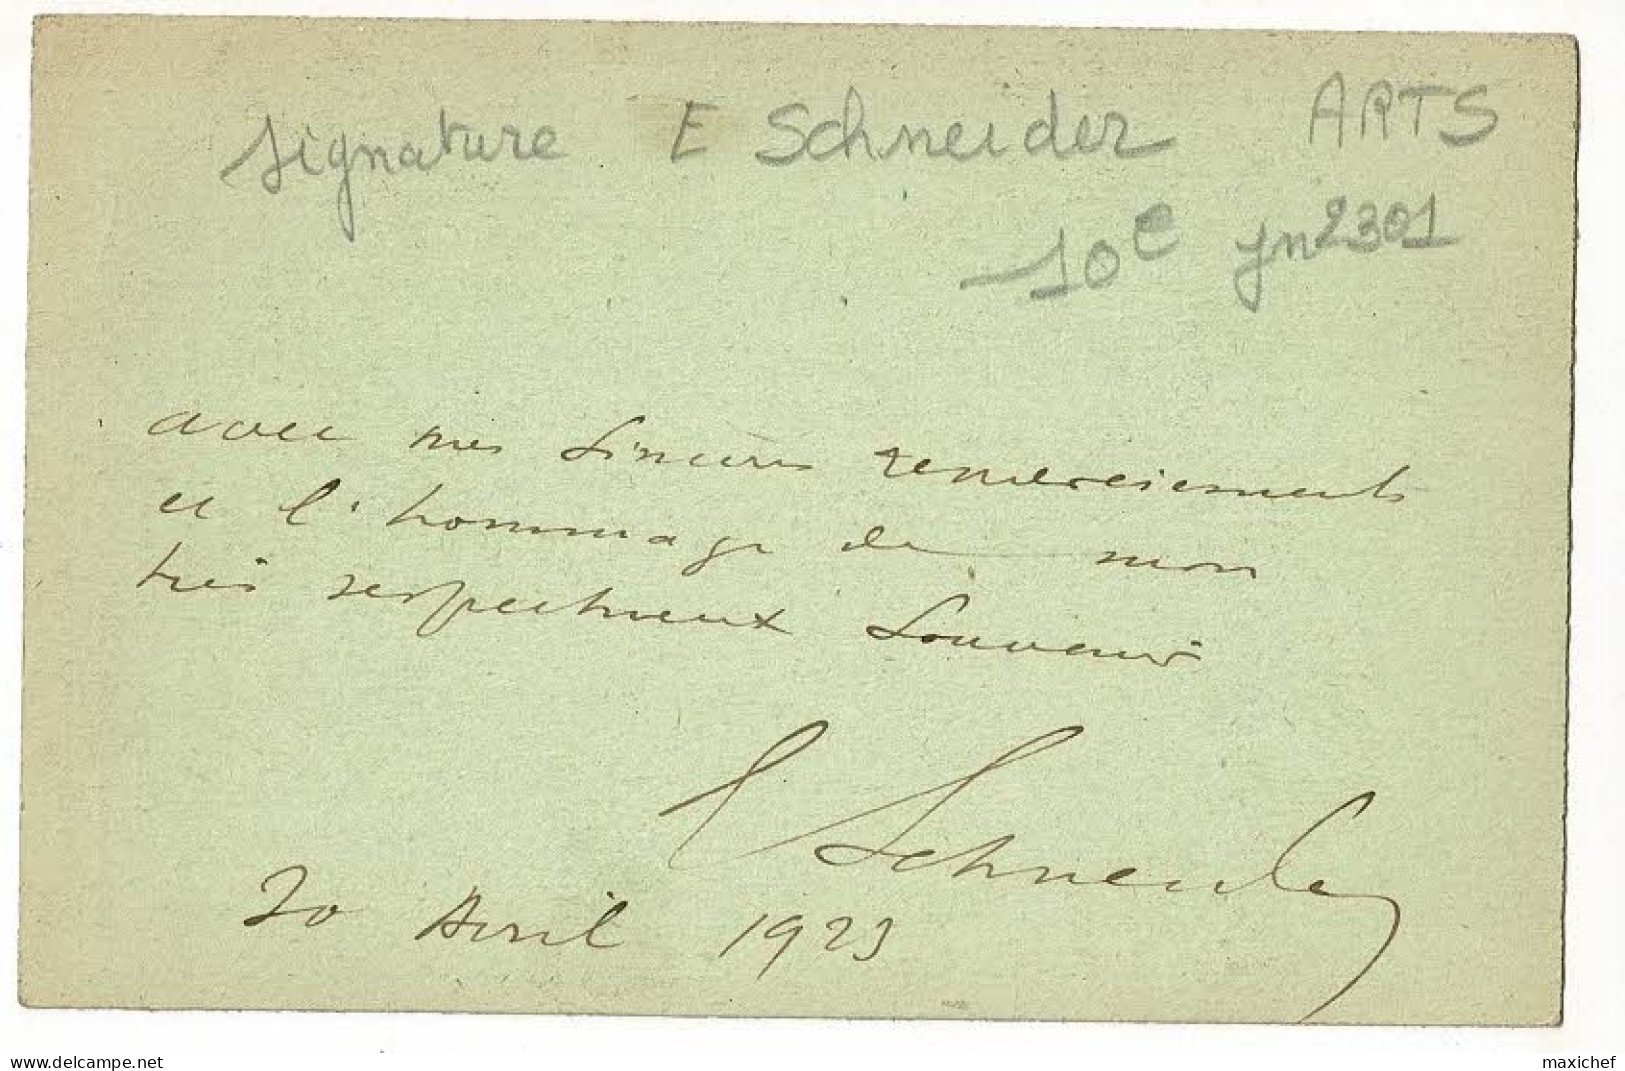 Signature E Schneider ARTS
10e yn2301
avec mes sincères remerciements
et l'hommage de mon
très respectueux souvenir
E Schneider
20 Avril 1923
www.delcampe.net
maxichef